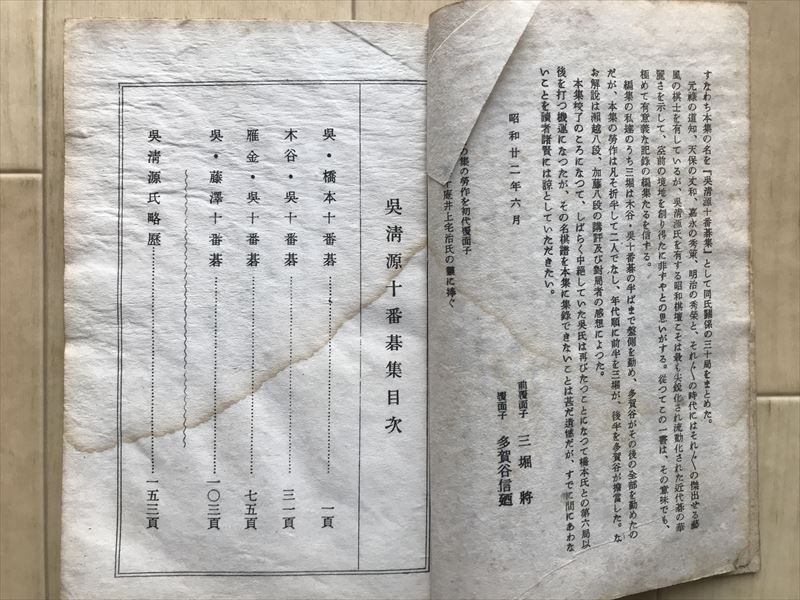 すなわち本集の名を『吳淸源十番碁集』として同氏關係の三十局をまとめた。
元祿の道知、天保の丈和、嘉永の秀策、明治の秀榮と、それ〴〵の時代にはそれ〴〵の傑出せる藝
風の棋士を有しているが、吳淸源氏を有する昭和棋壇こそは最も尖銳化され流動化された近代碁の華
麗さを示して、空前の境地を創り得たに非ずやとの思いがする。從つてこの一書は、その意味でも、
極めて有意義な記錄の編集たるを信する。
編集の私達のうち三堀は木谷・吳十番碁の半ばまで盤側を勤め、多賀谷がその後の全部を勤めたの
だが、本集の勞作は凡そ折半して二人でなし、年代順に前半を三堀が、後半を多賀谷が擔當した。な
お解說は瀬越八段、加藤八段の講評及び對局者の感想によつた。
本集校了のころになつて、しばらく中絕していた吳氏は再びたつことになつて橋本氏との第六局以
後を打つ機運になつたが、その名棋譜を本集に集錄できないことは甚だ遺憾だが、すでに間にあわな
いことを讀者諸賢には諒としていただきたい。
昭和廿二年六月
前覆面子 三堀將
覆面子 多賀谷信廼
の集の勞作を初代覆面子
庵井上宅治氏の靈に捧ぐ
吳淸源十番碁集目次
吳・橋本十番碁……一頁
木谷・吳十番碁……三一頁
雁金・吳十番碁……七五頁
吳・藤澤十番碁……一〇三頁
吳淸源氏略歷……一五三頁